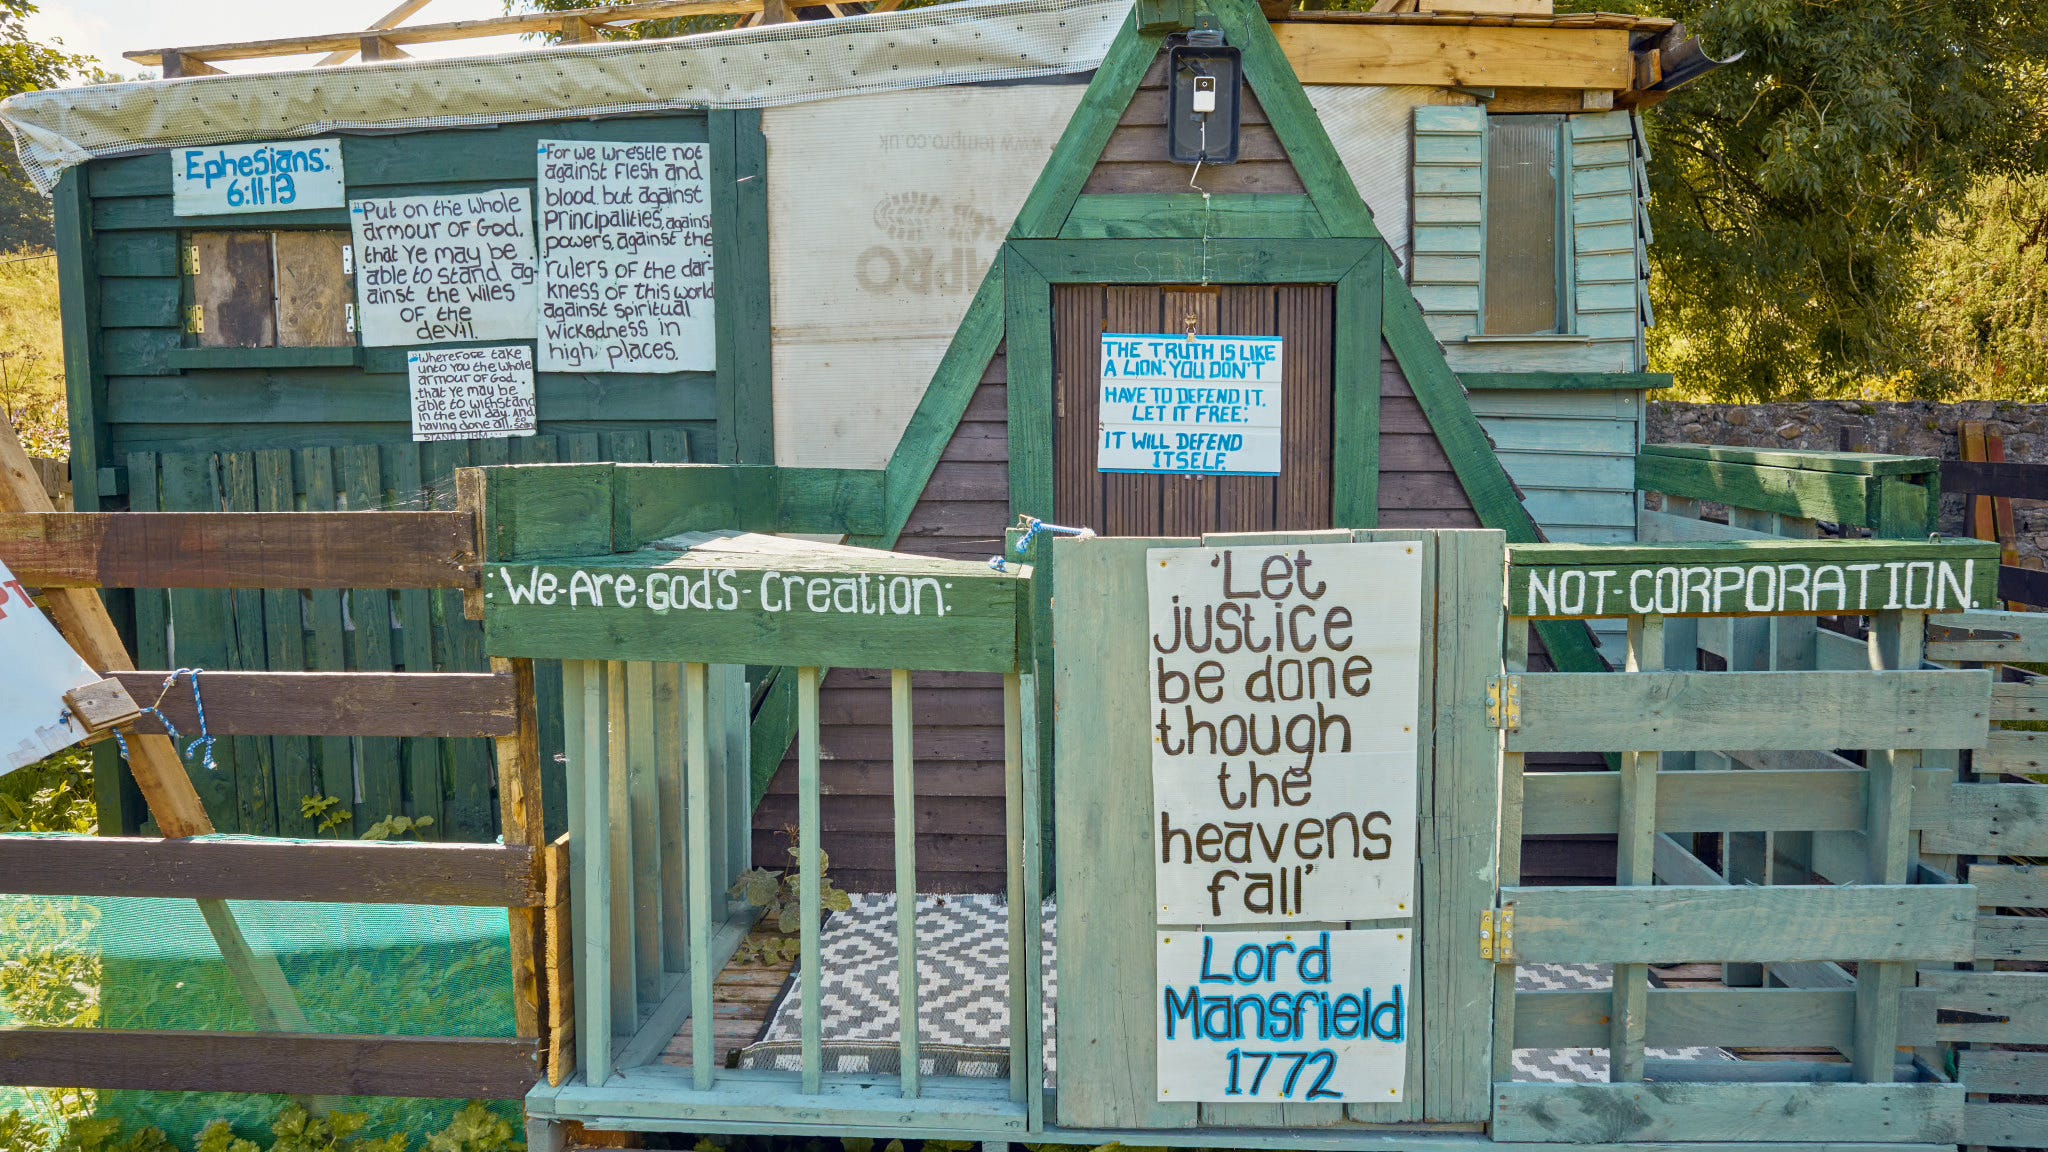 Ephesians:
6:11-13
"Put on the Whole
armour of God,
that Ye may be
able to stand ag-
ainst the wiles
OF the
devil.
"For we wrestle not
against Flesh and
blood, but against
principalities, against
powers, against the
rulers of the dar-
kness of this world
against spiritual
wickedness in
high places.
"Wherefore take
unto you the whole
armour of God,
that ye may be
able to withstand
in the evil day. And
having done all, to
STAND FIRM...
www.tenpro.co.uk
THE TRUTH IS LIKE
A LION: YOU DON'T
HAVE TO DEFEND IT.
LET IT FREE:
IT WILL DEFEND
ITSELF.
:We-Are-God's-Creation:
NOT-CORPORATION.
'Let
justice
be done
though
the
heavens
fall'
Lord
Mansfield
1772